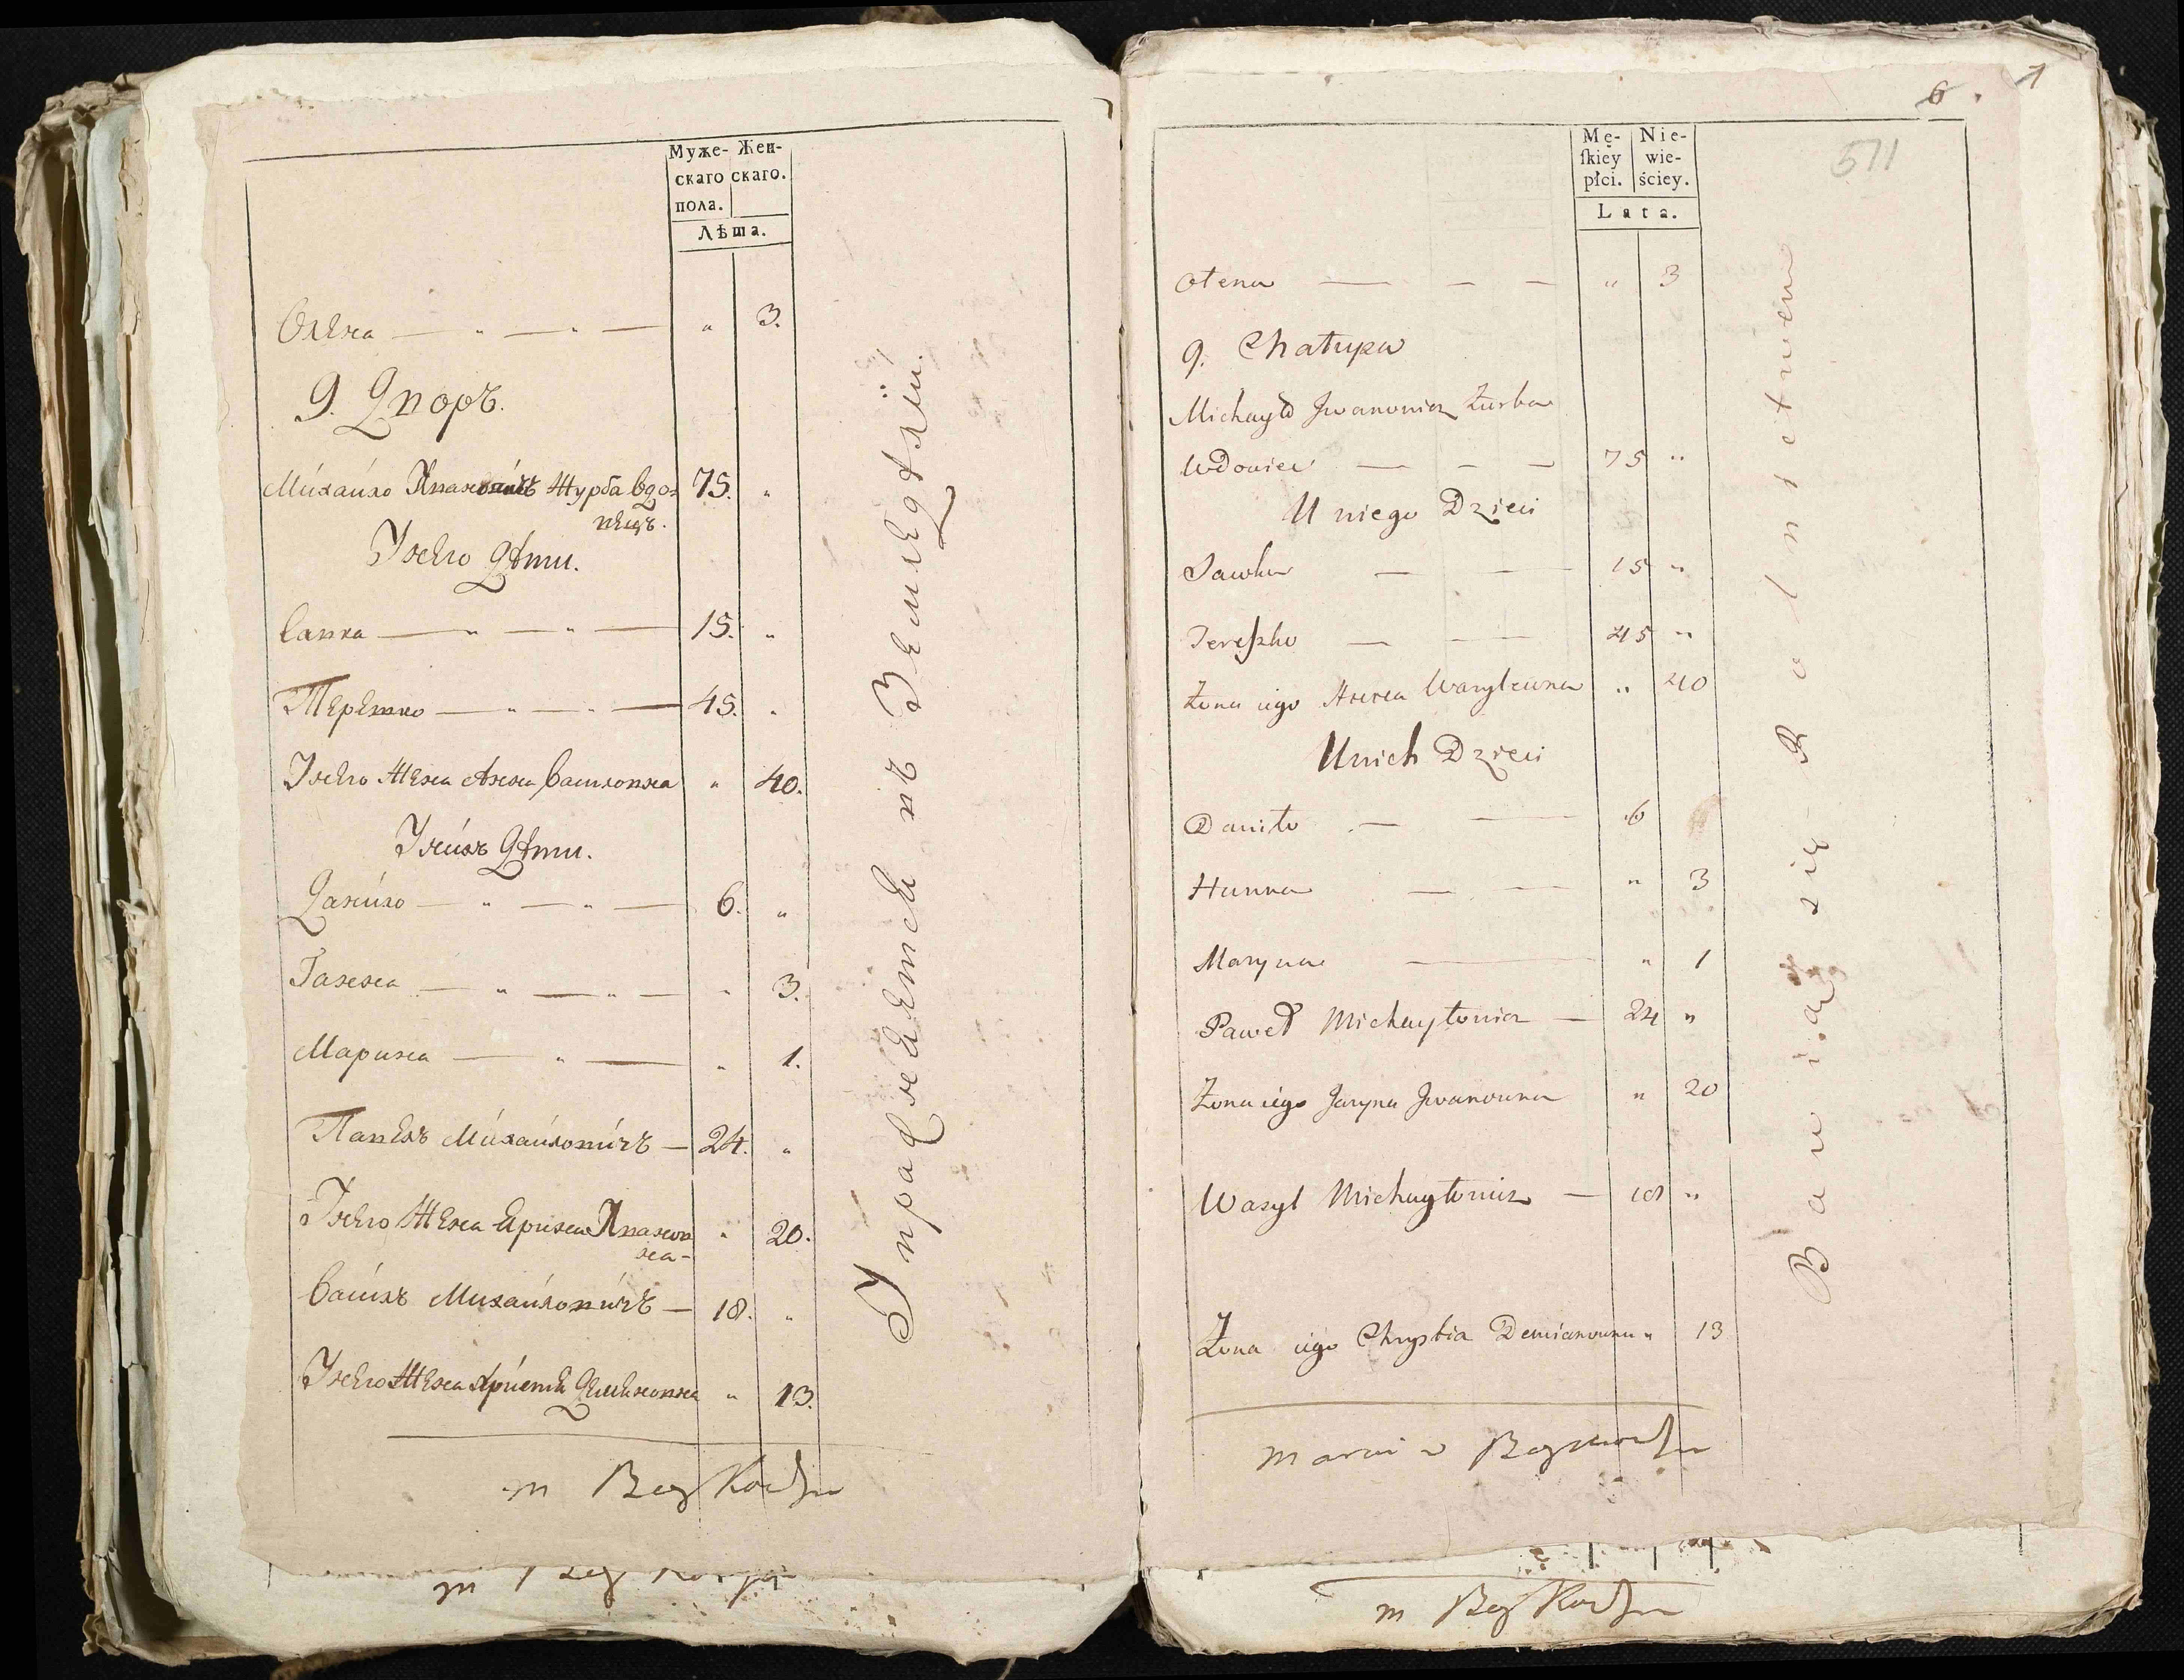 Муже- Жен-
скаго скаго.
пола.
Лѣта.
Олена — „ — „ — „ 3.
9. Дворъ.
Михайло Ивановичъ Журба вдо= 75. „
вецъ.
У него дѣти.
Савка — „ — „ — 15. „
Терешко — „ — „ — 45. „
У него жена Анна Василовна „ 40.
У нихъ дѣти.
Данило — „ — „ — 6. „
Ганна — „ — „ — „ 3.
Марина — „ — „ 1.
Павелъ Михайловичъ — 24. „
У него жена Ярина Иванов „ 20.
на-
Василь Михайловичъ — 18. „
У него жена Христя Демяновна „ 13.
Упражняется въ Земледѣлїи.
m
m
6. 7
511
Mę- Nie-
ſkiey wie-
płci. ściey.
Lata.
Ołena — — — „ 3
9. Chałupa
Michayło Jwanowicz Żurba
Wdowiec — — — 75 „
U niego Dzieci
Sawka — — 15 „
Tereszko — — 45 „
Żona iego Anna Wasylewna „ 40
U nich Dzieci
Daniło — — 6
Hanna — — „ 3
Maryna — „ 1
Paweł Michayłowicz — 24 „
Żona iego Jaryna Jwanowna „ 20
Wasyl Michayłowicz — 18 „
Żona iego Chrystia Demianowna „ 13
Bawią się Rolnictwem
m